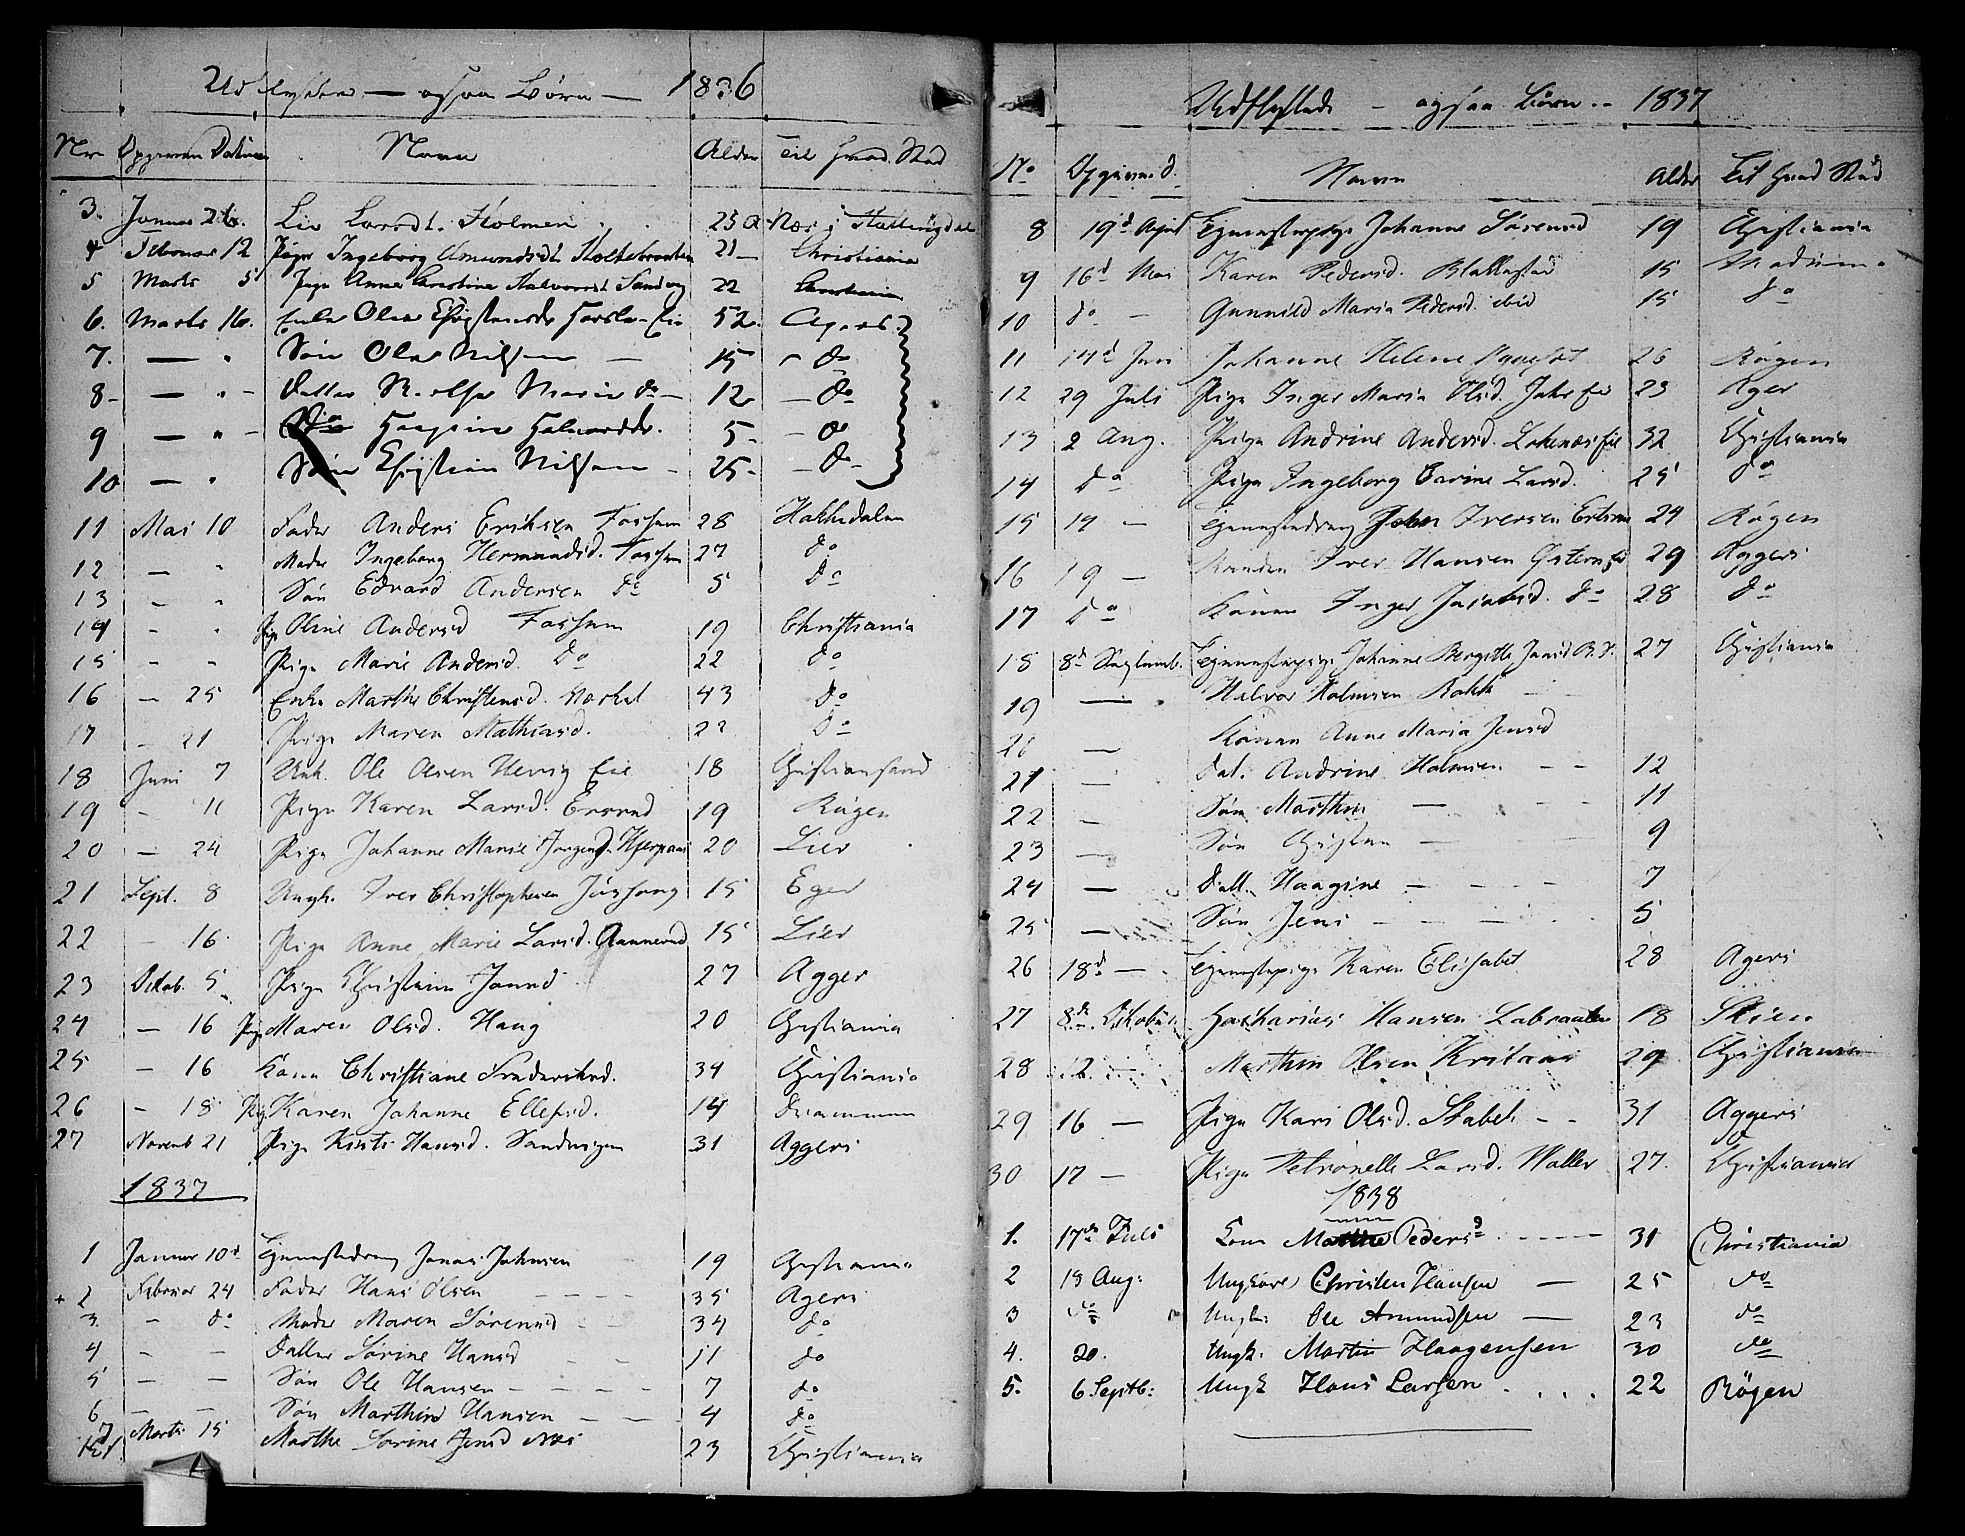 Udflyttede — ogsaa Börn — 1836
No Opgivne Datum Navn Alder Til hvad Sted
3. Januar 26. Liv Larsdt. Holmen 25 Næs i Hallingdal
4 Februar 12 Pige Ingeborg Amundsdt. 21 — Christiania
5 Marts 5 Pige Anne Halvorsdt. 22 Christiania
6. Marts 16. Enke Olea 52. Agers
7. — " Sön Olas Nilsen — 15 — do
8 — " — Datter Marie do — 12 — do
9 — " — Halvordsdr. 5 — do
10 — " Sön Christian Nilsen — 25 — do
11 Mai 10 Fader Anders Eriksen Fossum 28 Hakkedalen
12 — " Moder Ingeborg Hermandsd. Fossum 27 do
13 — " Sön Edvard Andersen do 5 do
14 - " Pige Oline Andersd Fossum 19 Christiania
15 - " Pige Marie Andersd. do 22 do
16 — 25 Enke Marthe Christensd. 43 do
17 - 21 Pige Maren Mathiasd. 22 do
18 Juni 7 Unk. Ole Olsen Eie 18 Christiansand
19 - 11 Pige Karen Larsd. 19 Röger
20 — 24 Pige Johanne Marie Jörgensd. 20 Lier
21 Sept. 8 Ungk. Iver Christophersen 15 Eger
22 - 16 Pige Anne Marie Larsd. 15 Lier
23 Octob. 5 Pige Christiane Jonsd 27 Agger
24 — 16 Pige Maren Olsd. Haug 20 Christiania
25 — 16 Kone Christiane 34 Christiania
26 - 18 Pige Karen Johanne Ellefsd. 14 Drammen
27 Novemb 21 Pige Kirsti Hansd. Sandvigen 31 Aggers
1837
1 Januar 10d Tjenestedreng Jonas Johnsen 19 Christiania
+ 2 Februar 24 Fader Hans Olsen - - - - 35 Agers
3. - do Moder Maren Sörensd - - 34 do
4 - - Datter Sörine Hansd - - 11 do
5 — — Sön Ole Hansen - - - - 7 do
6 — — Sön Marthin Hansen — - — 4 do
7 Marts 15 Marthe Sörine Jensd Næs 23 Christiania
Udflyttede - ogsaa Börn .. 1837
No Opgivne D. Navn Alder Til hvad Sted
8 19d April Tjenestepige Johanne Sörensd 19 Christiania
9 16d Mai Karen Pedersd. Blakkestad 15 Modum
10 do — Gunnild Maria Pedersd. ibid 15 do
11 14d Juni Johanne Helene 26 Rögen
12 29 Juli Pige Inger Maria Olsd. Jahr Eie 23 Ager
13 2 Aug. Pige Andrine Andersd. Eie 32 Christiania
14 do Pige Ingeborg Carine Larsd. 25 do
15 14 — Tjenestedreng John Iversen 24 Rögen
16 19 — Manden Iver Hansen 29 Aggers
17 do Konen Inger Jacobsd. do 28 do
18 8d Septemb. Tjenestepige Johanne Bergitte Jensd 27 Christiania
19 — Halvor Holmsen Bakk
20 — Konen Anne Maria Jensd
21 — Dat. Andrine Holmsen - - 12
22 — Sön Marthin — - 11
23 — Sön Christian — - 9
24 — Datt. Haagine — - - - 7
25 — Sön Jens - - - - 5
26 18d — Tjenestepige Karen Elisabet 28 Agers
27 8de Oktober Zacharias Hansen Labraaten 18 Skien
28 12. — Marthin Olsen 29 Christiania
29 16 — Pige Kari Olsd. Stabek - - 31 Aggers
30 17 — Pige Petronelle Larsd. Waller 27. Christiania
1838
1. 17de Juli Kone Marthe Pedersd . - - - - 31 Christiania
2 18 Aug: Ungkarl Christen Hansen — 25 do
3 do Ungk: Ole Amundsen — 23 do
4. 20. Ungk. Martin Haagensen 30 do
5. 6 Septb: Ungk Hans Larsen . . . . 22 Rögen